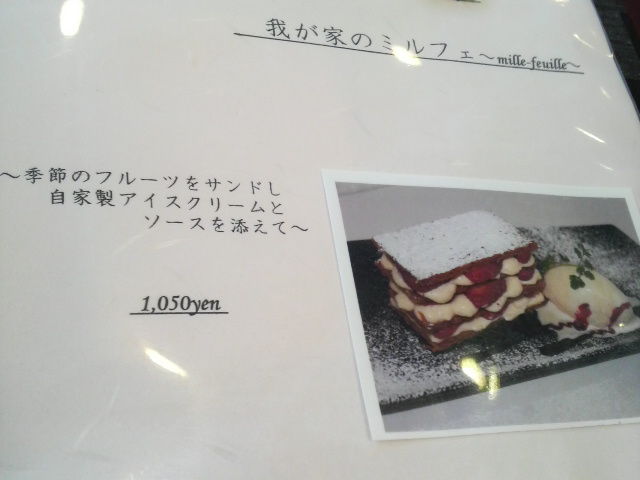 我が家のミルフェ～mille-feuille～
～季節のフルーツをサンドし
自家製アイスクリームと
ソースを添えて～
1,050yen